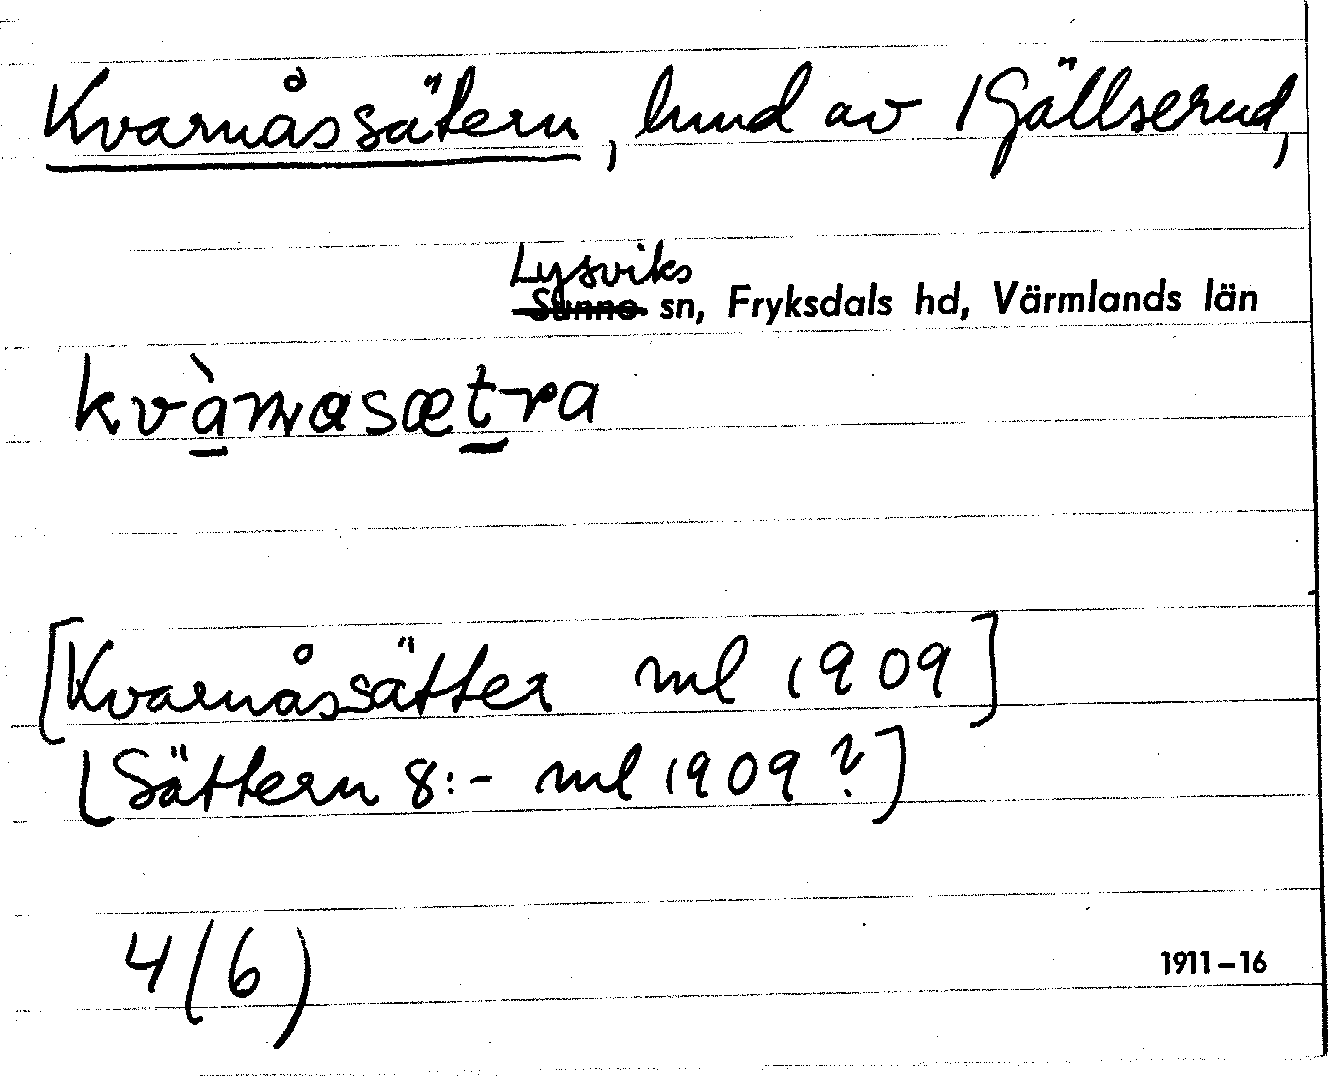 Kvarnåssätern, hmd av 1 Gällserud,
Lysviks
Sunne sn, Fryksdals hd, Värmlands län
kvàrnasætra
[Kvarnåssätter ml 1909]
[Sättern 8:- ml 1909?]
4(6)
1911–16